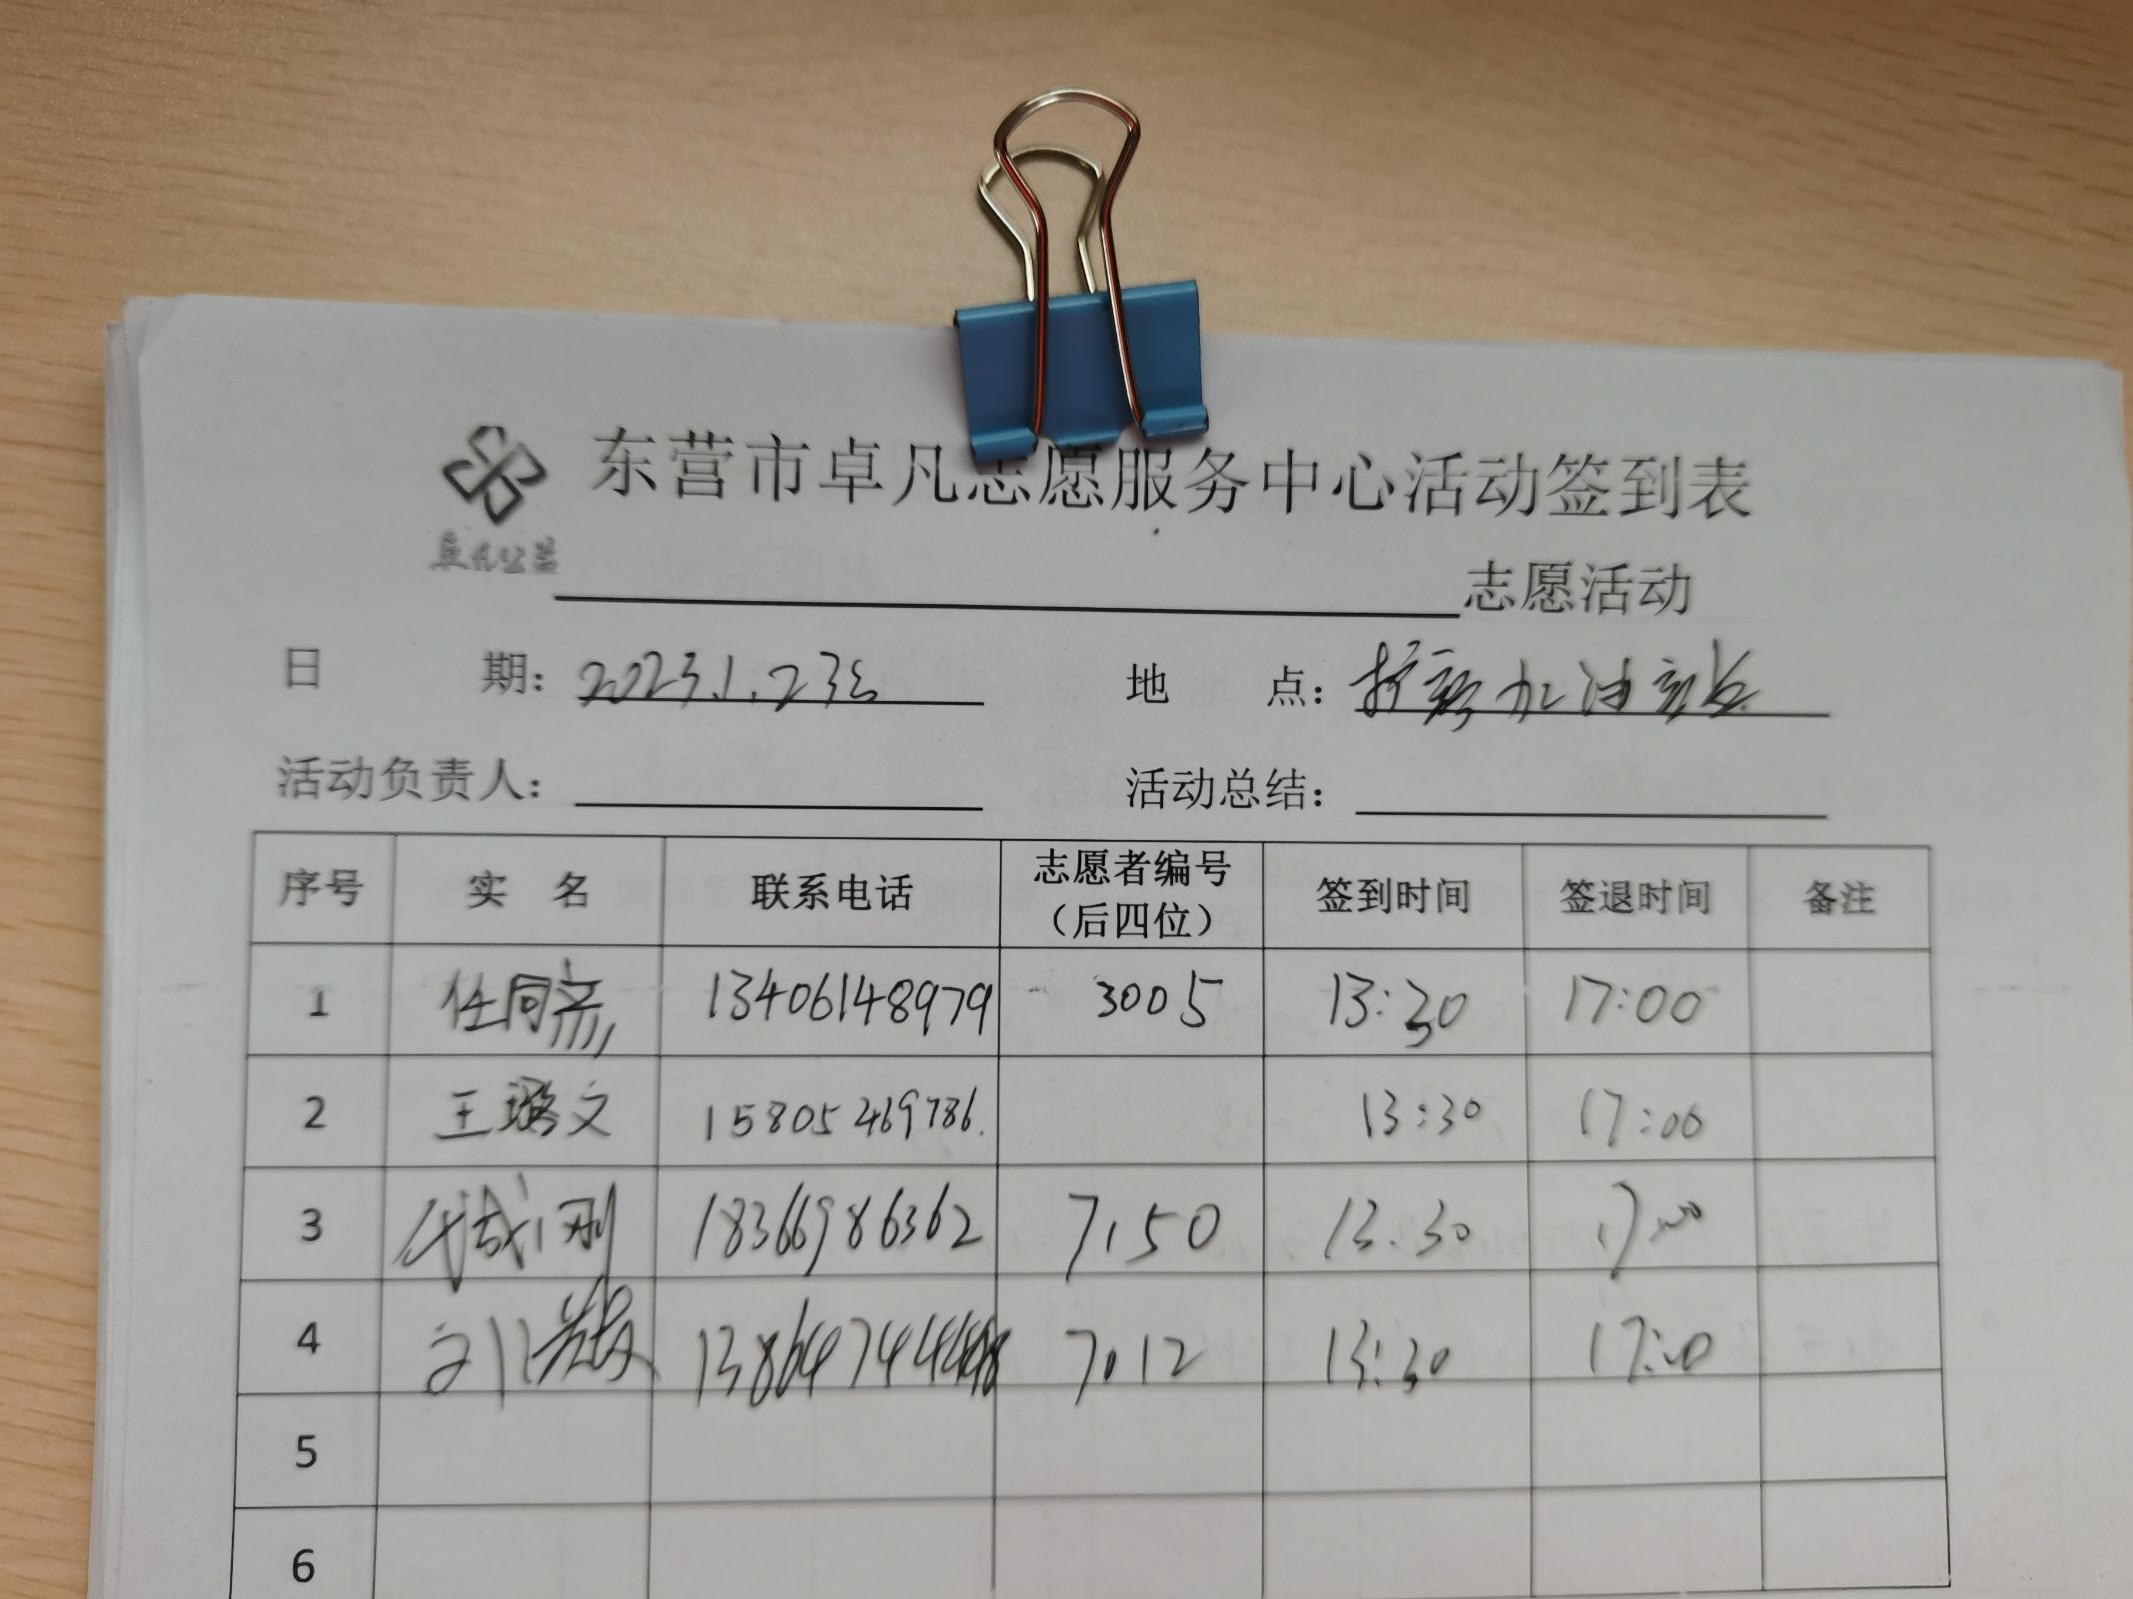 东营市卓凡志愿服务中心活动签到表
卓凡公益
志愿活动
日 期：2023.1.23
地 点：加油站
活动负责人：
活动总结：
序号 实 名 联系电话 志愿者编号（后四位） 签到时间 签退时间 备注
1 任同彦 13406148979 3005 13:30 17:00
2 王璐文 15805469786. 13:30 17:00
3 18366986362 7150 13:30 17:00
4 7012 13:30 17:00
5
6